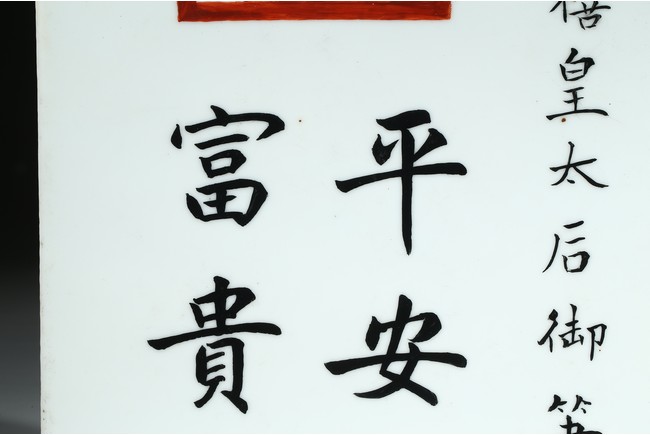 皇太后御
平安
富貴